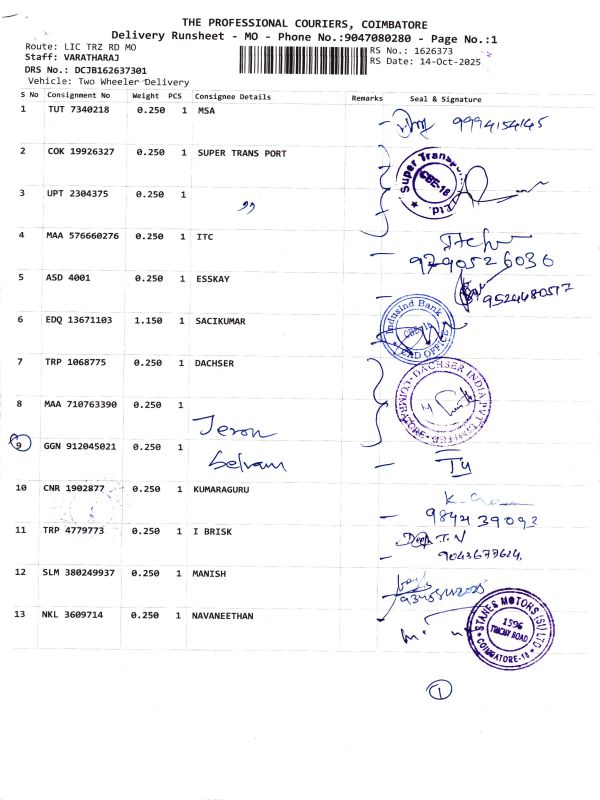 THE PROFESSIONAL COURIERS, COIMBATORE
Delivery Runsheet - MO - Phone No.:9047080280 - Page No.:1
Route: LIC TRZ RD MO
RS No.: 1626373
Staff: VARATHARAJ
RS Date: 14-Oct-2025
DRS No.: DCJB162637301
Vehicle: Two Wheeler Delivery
S No Consignment No Weight PCS Consignee Details Remarks Seal & Signature
1 TUT 7340218 0.250 1 MSA
9994154145
2 COK 19926327 0.250 1 SUPER TRANS PORT
Super Transpo
CBE-18
Ltd.
3 UPT 2304375 0.250 1
,,
4 MAA 576660276 0.250 1 ITC
9790526036
5 ASD 4001 0.250 1 ESSKAY
9524480517
6 EDQ 13671103 1.150 1 SACIKUMAR
Indusind Bank
CAD OFFICE
7 TRP 1068775 0.250 1 DACHSER
DACHSER INDIA PVT. LIMITED
8 MAA 710763390 0.250 1
Jeron
9 GGN 912045021 0.250 1
Selvam
10 CNR 1902877 0.250 1 KUMARAGURU
9842439093
11 TRP 4779773 0.250 1 I BRISK
T.V
9043677624
12 SLM 380249937 0.250 1 MANISH
13 NKL 3609714 0.250 1 NAVANEETHAN
STANES MOTORS (SI) LTD
1596
TRICHY ROAD
COIMBATORE-18
1